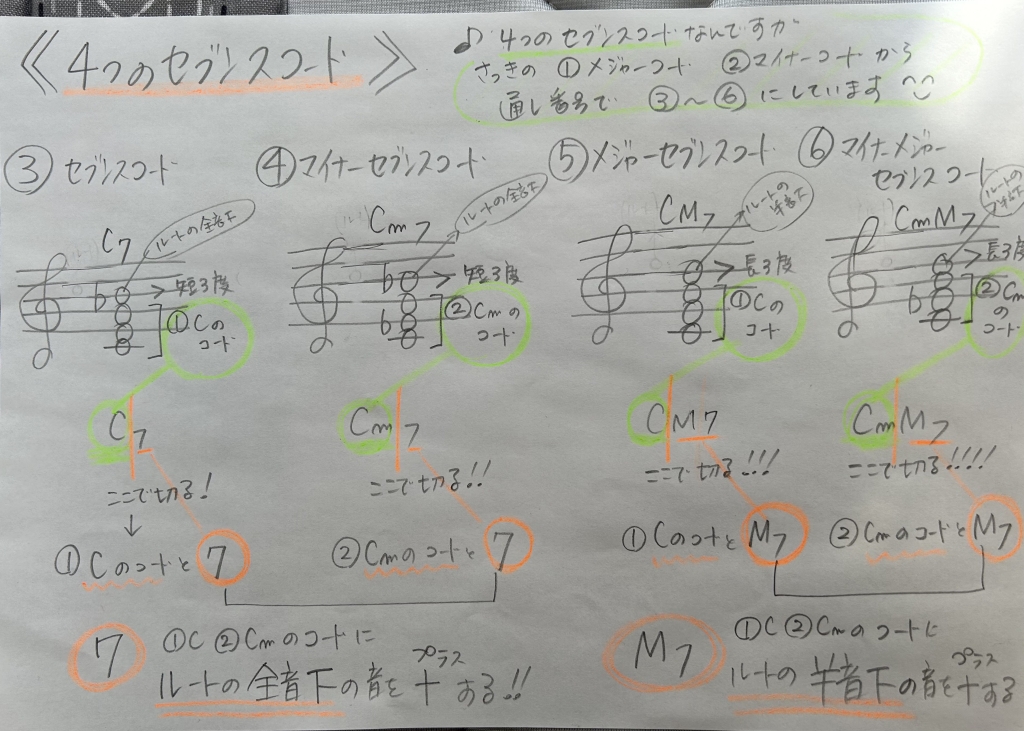 《4つのセブンスコード》
♪ 4つのセブンスコードなんですが
さっきの ①メジャーコード ②マイナーコードから
通し番号で ③〜⑥にしています
③ セブンスコード
④ マイナーセブンスコード
⑤ メジャーセブンスコード
⑥ マイナーメジャー
セブンスコード
C7
ルートの全音下
♭
> 短3度
①Cの
コード
Cm7
ルートの全音下
♭
♭
> 短3度
②Cmの
コード
CM7
ルートの
半音下
> 長3度
①Cの
コード
CmM7
ルートの
半音下
♭
> 長3度
②Cm
の
コード
C7
ここで切る!
↓
①Cのコードと 7
Cm7
ここで切る!!
②Cmのコードと 7
CM7
ここで切る!!!
①Cのコードと M7
CmM7
ここで切る!!!!
②Cmのコードと M7
7
①C ②Cmのコードに
プラス
ルートの全音下の音を+する!!
M7
①C ②Cmのコードに
プラス
ルートの半音下の音を+する